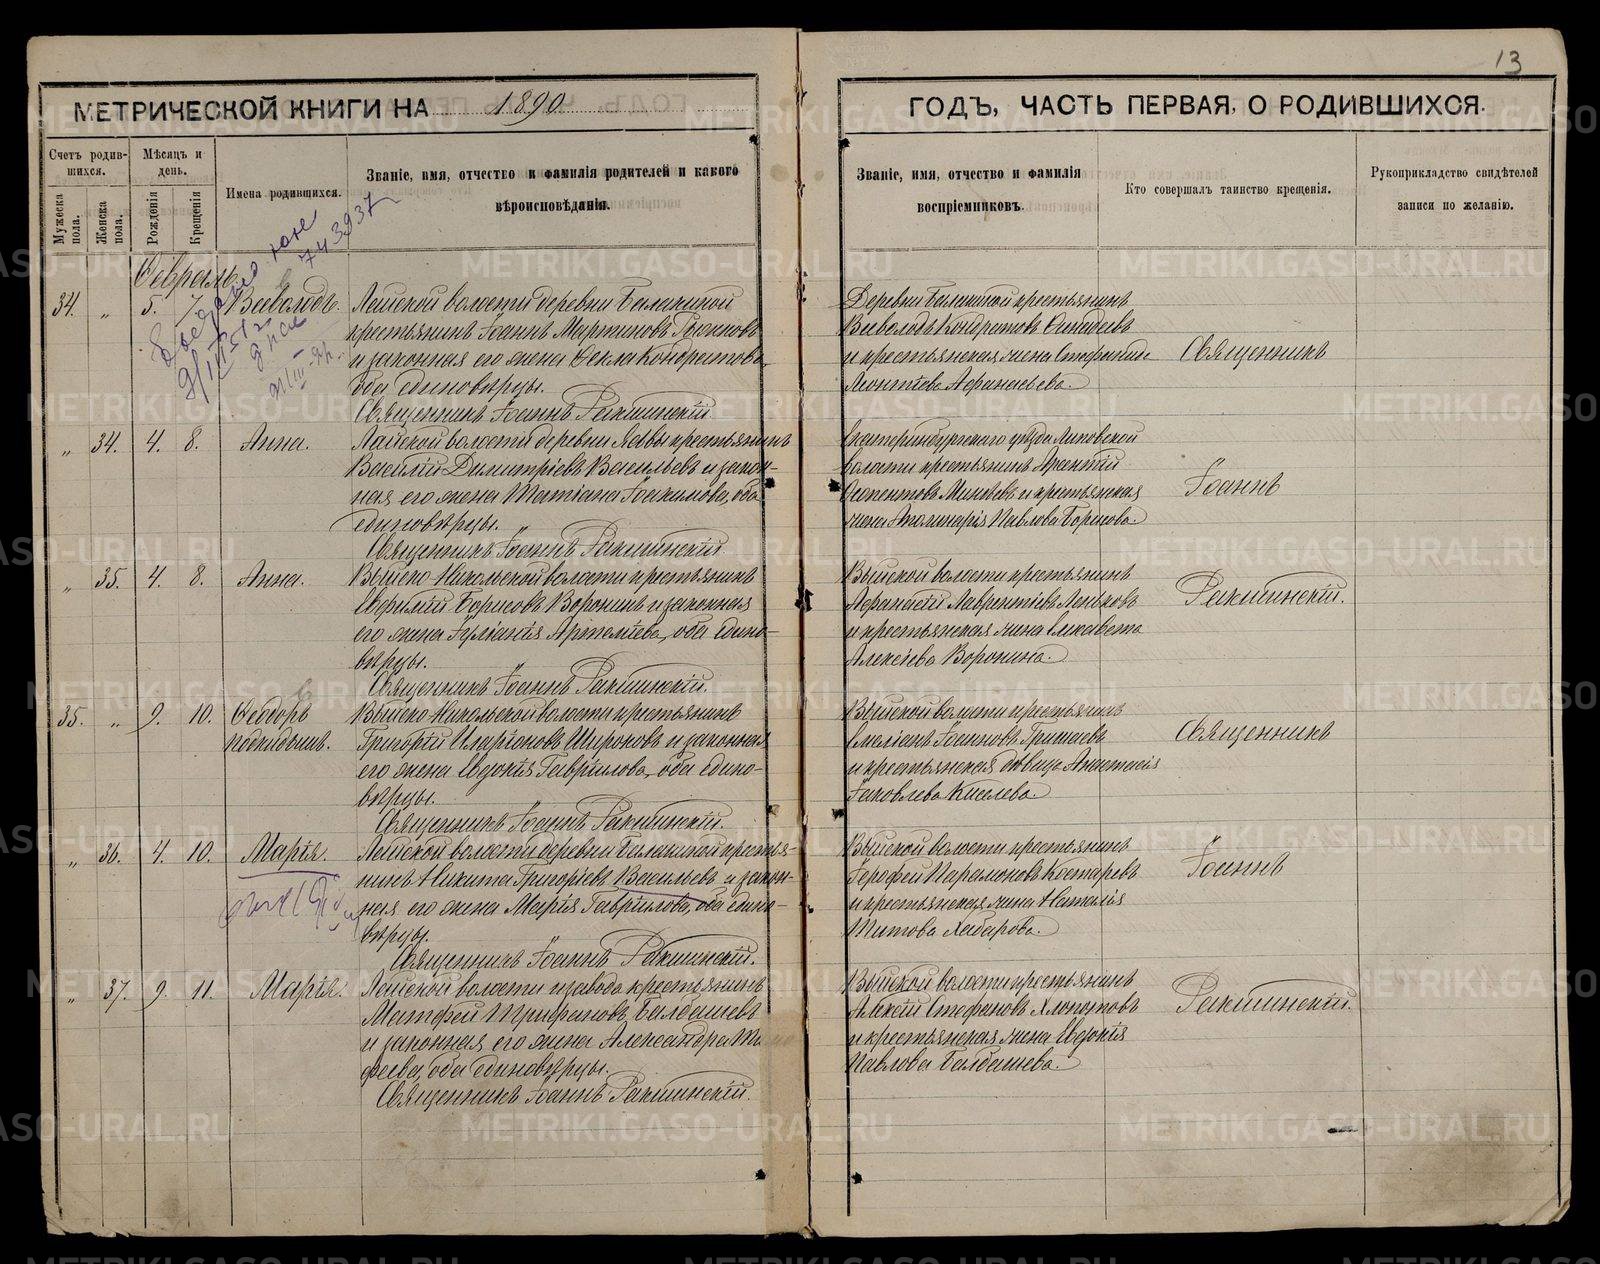 13
МЕТРИЧЕСКОЙ КНИГИ НА 1890
ГОДЪ, ЧАСТЬ ПЕРВАЯ, О РОДИВШИХСЯ.
Счетъ родив-
шихся.
Мужеска пола.
Женска пола.
Мѣсяцъ и
день.
Рожденія
Крещенія
Имена родившихся.
Званіе, имя, отчество и фамилія родителей и какого
вѣроисповѣданія.
Званіе, имя, отчество и фамилія
воспріемниковъ.
Кто совершалъ таинство крещенія.
Рукоприкладство свидѣтелей
записи по желанію.
743937
Февраль
34. „ 5. 7. Всеволодъ.
Лайской волости деревни Балакиной
крестьянинъ Іоаннъ Мартиновъ
и законная его жена Ѳекла Кондратова,
оба единовѣрцы.
Священникъ Іоаннъ Ракшинскій
Деревни Балакиной крестьянинъ
Всеволодъ Кондратовъ
и крестьянская жена Стефанида
Леонтіева Аѳанасьева.
Священникъ
„ 34. 4. 8. Анна.
Лайской волости деревни крестьянинъ
Василій Димитріевъ Васильевъ и закон-
ная его жена Татіана Іоакимова, оба
единовѣрцы.
Священникъ Іоаннъ Ракшинскій
Екатеринбургскаго уѣзда Липовской
волости крестьянинъ
Минѣевъ и крестьянская
жена Аполинарія Павлова Борисова.
Іоаннъ
„ 35. 4. 8. Анна.
Выйско-Никольской волости крестьянинъ
Евфимій Борисовъ Воронинъ и законная
его жена Іуліанія Артеміева, оба едино-
вѣрцы.
Священникъ Іоаннъ Ракшинскій.
Выйской волости крестьянинъ
Аѳанасій Лаврентіевъ Леньковъ
и крестьянская жена Елисавета
Алексіева Воронина.
Ракшинскій.
35. „ 9. 10. Ѳеодоръ
подкидышъ.
Выйско-Никольской волости крестьянинъ
Григорій Иларіоновъ Широковъ и законная
его жена Евдокія Гавріилова, оба едино-
вѣрцы.
Священникъ Іоаннъ Ракшинскій.
Выйской волости крестьянинъ
Емеліанъ Іоанновъ
и крестьянская дѣвица Анастасія
Іаковлева Киселева.
Священникъ
„ 36. 4. 10. Марія.
Лайской волости деревни Балакиной крестья-
нинъ Никита Григоріевъ Васильевъ и закон-
ная его жена Марія Гавріилова, оба едино-
вѣрцы.
Священникъ Іоаннъ Ракшинскій.
Выйской волости крестьянинъ
Іерофей Парамоновъ Костаревъ
и крестьянская жена Наталія
Титова Хабарова.
Іоаннъ
„ 37. 9. 11. Марія.
Лайской волости и завода крестьянинъ
Матфей Трифановъ Балдашевъ
и законная его жена Александра
фѣева, оба единовѣрцы.
Священникъ Іоаннъ Ракшинскій.
Выйской волости крестьянинъ
Алексій Стефановъ Хлопотовъ
и крестьянская жена Евдокія
Павлова Балдашева.
Ракшинскій.
METRIKI.GASO-URAL.RU